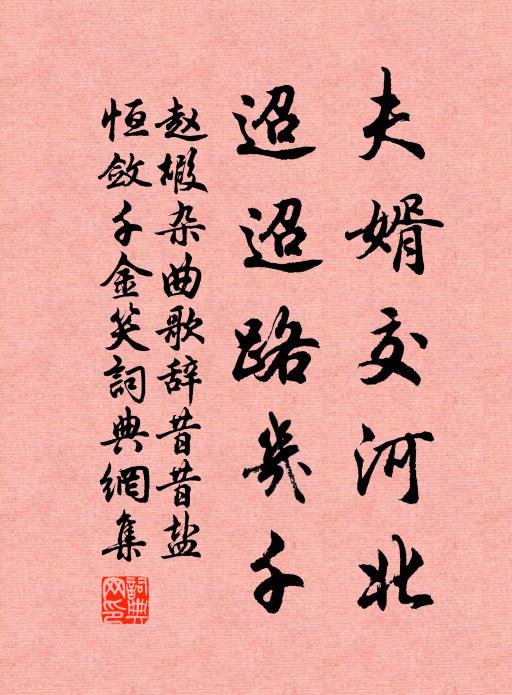 夫婿交河北
迢迢路幾千
赵嘏杂曲歌辞昔昔盐
恒敛千金笑詞典網集
詞典网印